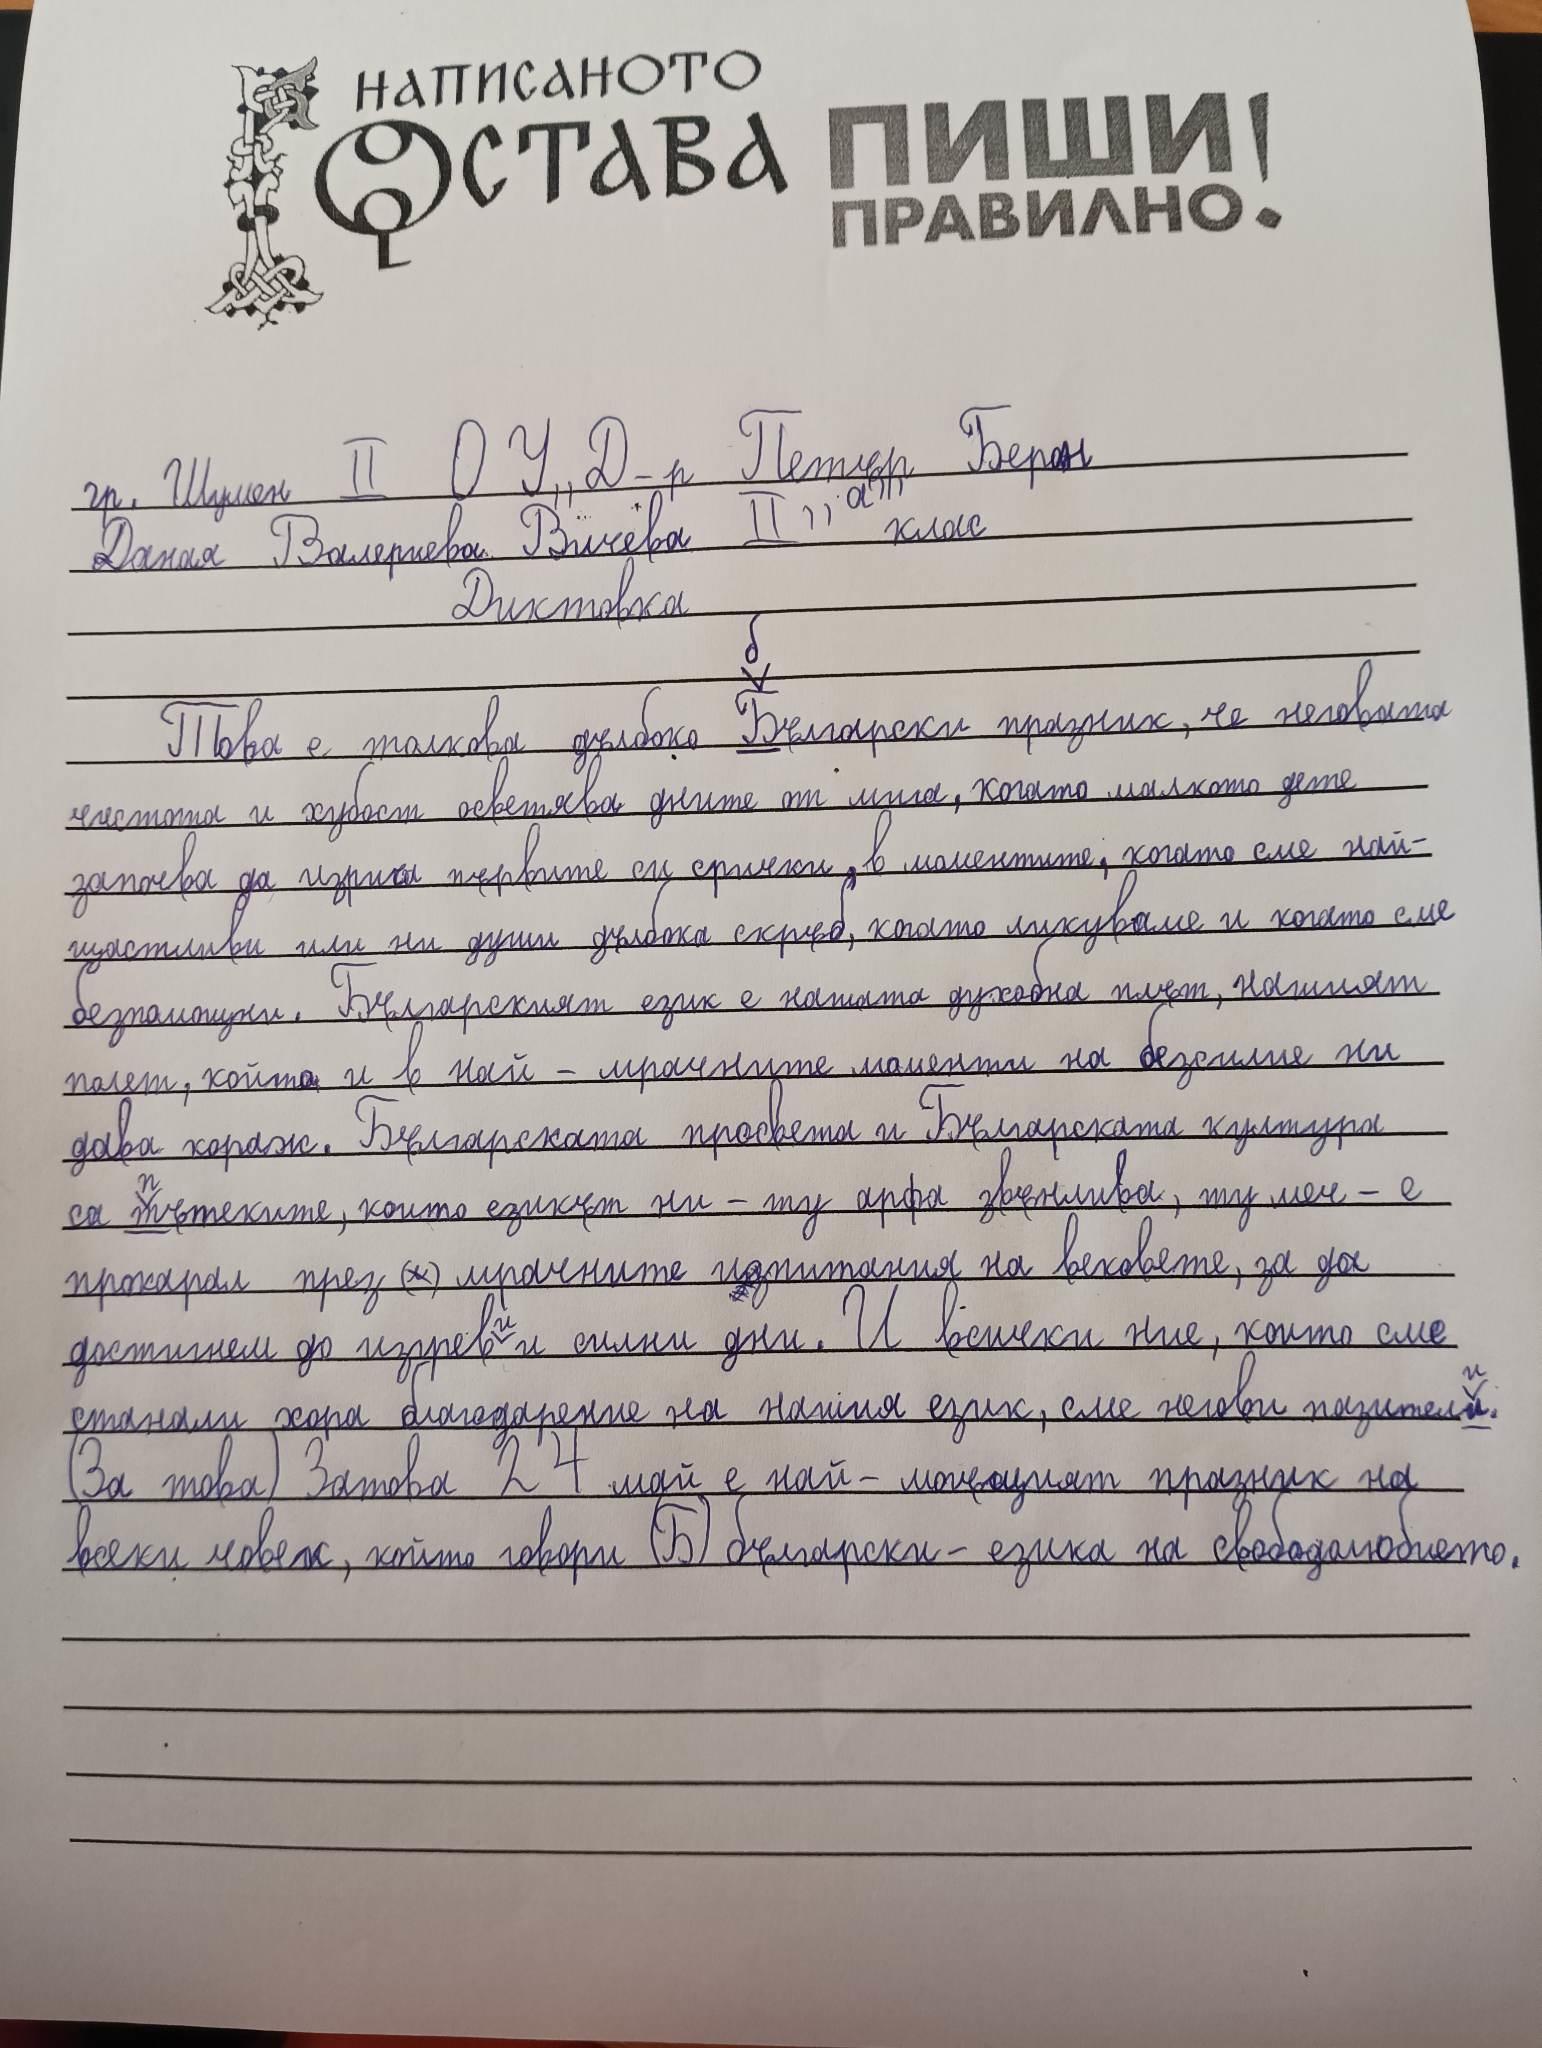 НАПИСАНОТО
ОСТАВА
ПИШИ!
ПРАВИЛНО.
гр. Шумен II ОУ „Д-р Петър Берон
Даная Валериева Вичева II „а" клас
Диктовка
б
Това е толкова дълбоко Български празник, че неговата
чистота и хубост осветява дните от мига, когато малкото дете
започва да изрича първите си срички, в моментите, когато сме най-
щастливи или ни души дълбока скръб, когато ликуваме и когато сме
безпомощни. Българският език е нашата духовна плът, нашият
полет, който и в най - мрачните моменти на безсилие ни
дава кораж. Българската просвета и Българската култура
п
са тътеките, които езикът ни - ту арфа звънлива, ту меч - е
прокарал през (х) мрачните изпитания на вековете, за да
и
достигнем до изгрев и силни дни. И всички ние, които сме
и
станали хора благодарение на нашия език, сме негови пазители.
(За това) Затова 24 май е най - мощният празник на
всеки човек, който говори (Б) български - езика на свободолюбието.